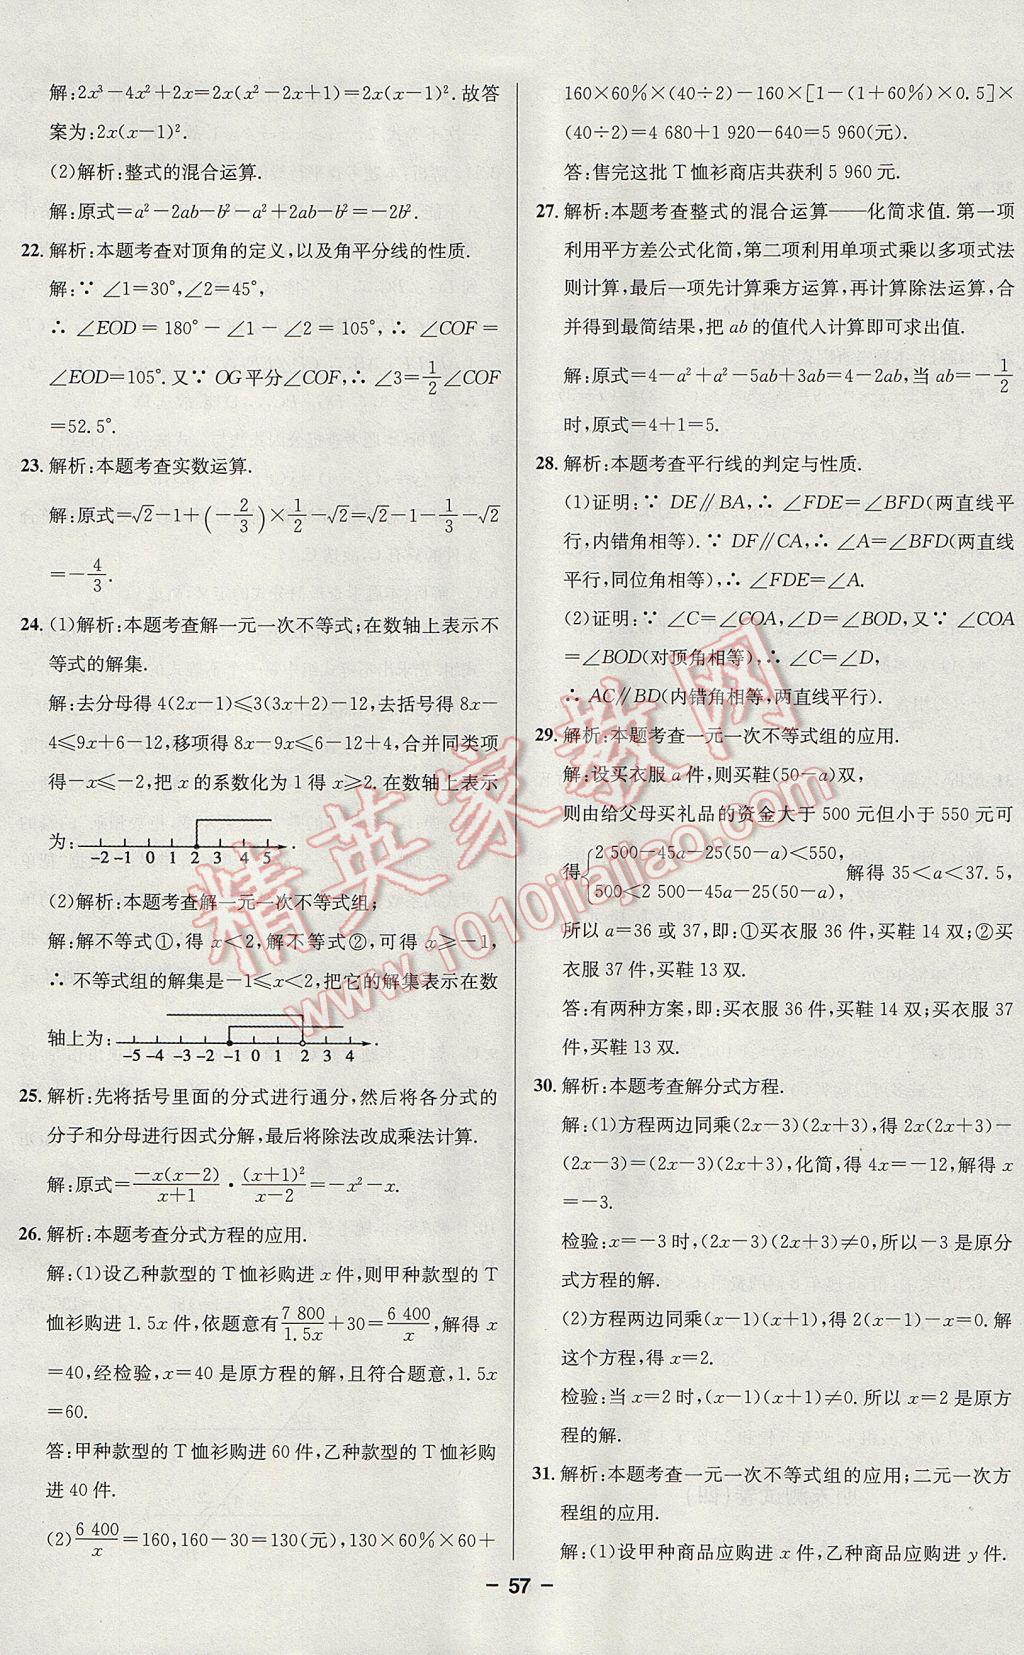 解:2x³-4x²+2x=2x(x²-2x+1)=2x(x-1)².故答
案为:2x(x-1)².
(2)解析:整式的混合运算.
解:原式=a²-2ab-b²-a²+2ab-b²=-2b².
22. 解析:本题考查对顶角的定义,以及角平分线的性质.
解:∵ ∠1=30°,∠2=45°,
∴ ∠EOD=180°-∠1-∠2=105°,∴ ∠COF=
∠EOD=105°.又∵ OG平分∠COF,∴ ∠3=1/2∠COF
=52.5°.
23. 解析:本题考查实数运算.
解:原式=√2-1+(-2/3)×1/2-√2=√2-1-1/3-√2
=-4/3.
24. (1)解析:本题考查解一元一次不等式;在数轴上表示不
等式的解集.
解:去分母得 4(2x-1)≤3(3x+2)-12,去括号得 8x-
4≤9x+6-12,移项得 8x-9x≤6-12+4,合并同类项
得-x≤-2,把 x 的系数化为 1 得 x≥2.在数轴上表示
为: -2 -1 0 1 2 3 4 5 .
(2)解析:本题考查解一元一次不等式组;
解:解不等式①,得 x<2,解不等式②,可得 x≥-1,
∴ 不等式组的解集是-1≤x<2,把它的解集表示在数
轴上为: -5 -4 -3 -2 -1 0 1 2 3 4 .
25. 解析:先将括号里面的分式进行通分,然后将各分式的
分子和分母进行因式分解,最后将除法改成乘法计算.
解:原式=-x(x-2)/(x+1)·(x+1)²/(x-2)=-x²-x.
26. 解析:本题考查分式方程的应用.
解:(1)设乙种款型的 T 恤衫购进 x 件,则甲种款型的 T
恤衫购进 1.5x 件,依题意有7 800/1.5x+30=6 400/x,解得 x
=40,经检验,x=40 是原方程的解,且符合题意,1.5x
=60.
答:甲种款型的 T 恤衫购进 60 件,乙种款型的 T 恤衫购
进 40 件.
(2)6 400/x=160,160-30=130(元),130×60%×60+
160×60%×(40÷2)-160×[1-(1+60%)×0.5]×
(40÷2)=4 680+1 920-640=5 960(元).
答:售完这批 T 恤衫商店共获利 5 960 元.
27. 解析:本题考查整式的混合运算——化简求值.第一项
利用平方差公式化简,第二项利用单项式乘以多项式法
则计算,最后一项先计算乘方运算,再计算除法运算,合
并得到最简结果,把 ab 的值代人计算即可求出值.
解:原式=4-a²+a²-5ab+3ab=4-2ab,当 ab=-1/2
时,原式=4+1=5.
28. 解析:本题考查平行线的判定与性质.
(1)证明:∵ DE∥BA,∴ ∠FDE=∠BFD(两直线平
行,内错角相等).∵ DF∥CA,∴ ∠A=∠BFD(两直线
平行,同位角相等),∴ ∠FDE=∠A.
(2)证明:∵ ∠C=∠COA,∠D=∠BOD,又∵ ∠COA
=∠BOD(对顶角相等),∴ ∠C=∠D,
∴ AC∥BD(内错角相等,两直线平行).
29. 解析:本题考查一元一次不等式组的应用.
解:设买衣服 a 件,则买鞋(50-a)双,
则由给父母买礼品的资金大于 500 元但小于 550 元可
得{2 500-45a-25(50-a)<550, 500<2 500-45a-25(50-a),解得 35<a<37.5,
所以 a=36 或 37,即:①买衣服 36 件,买鞋 14 双;②买
衣服 37 件,买鞋 13 双.
答:有两种方案,即:买衣服 36 件,买鞋 14 双;买衣服 37
件,买鞋 13 双.
30. 解析:本题考查解分式方程.
解:(1)方程两边同乘(2x-3)(2x+3),得 2x(2x+3)-
(2x-3)=(2x-3)(2x+3),化简,得 4x=-12,解得 x
=-3.
检验:x=-3 时,(2x-3)(2x+3)≠0,所以-3 是原分
式方程的解.
(2)方程两边同乘(x-1)(x+1),得 2(x-1)-x=0.解
这个方程,得 x=2.
检验:当 x=2 时,(x-1)(x+1)≠0.所以 x=2 是原方
程的解.
31. 解析:本题考查一元一次不等式组的应用;二元一次方
程组的应用.
解:(1)设甲种商品应购进 x 件,乙种商品应购进 y 件.
- 57 -
精英家教网
www.1010jiajiao.com